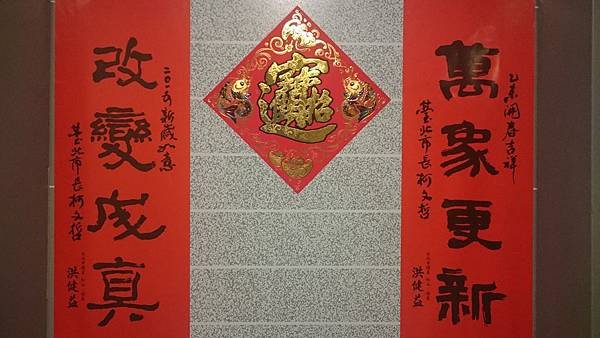 萬象更新
乙未開春吉祥
臺北市長柯文哲
洪健益
招財進寶
改變成真
二〇一五新歲如意
臺北市長柯文哲
洪健益